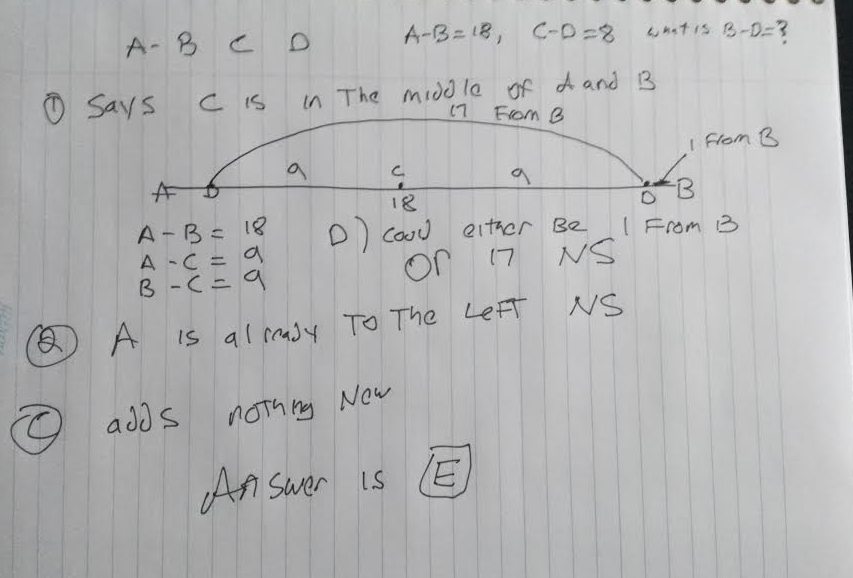 A-B C D A-B=18, C-D=8 what is B-D=?
① Says C is in The middle of A and B
17 From B
1 From B
A D 9 C 9 D B
18
A-B = 18 D) could either Be 1 From B
A-C = 9 or 17 NS
B-C = 9
② A is already To The Left NS
Ⓒ adds nothing New
Answer is E